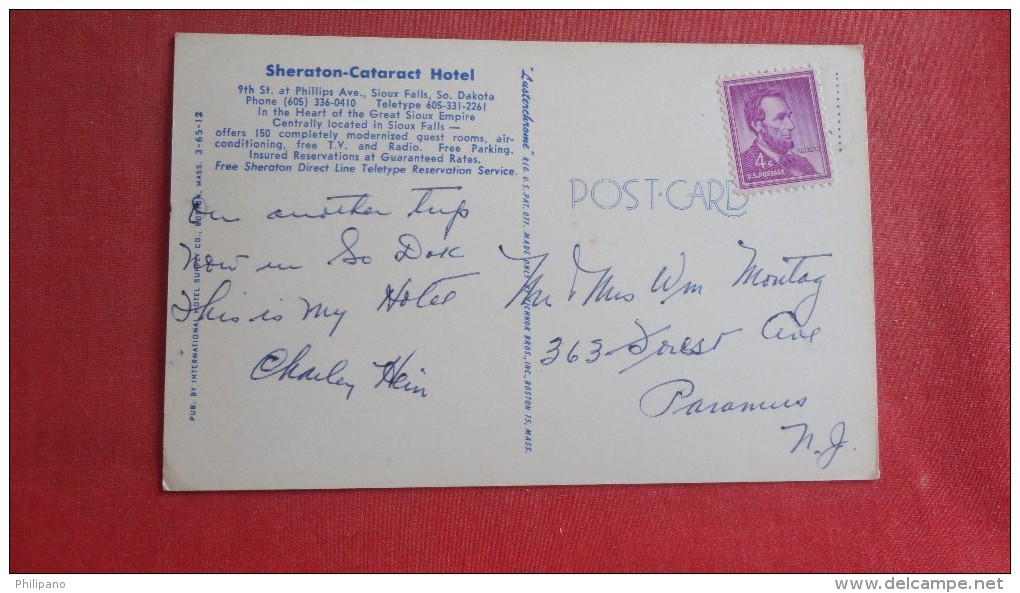 Sheraton-Cataract Hotel
9th St. at Phillips Ave., Sioux Falls, So. Dakota
Phone (605) 336-0410 Teletype 605-331-2261
In the Heart of the Great Sioux Empire
Centrally located in Sioux Falls —
offers 150 completely modernized guest rooms, air-
conditioning, free T.V. and Radio. Free Parking.
Insured Reservations at Guaranteed Rates.
Free Sheraton Direct Line Teletype Reservation Service.
On another trip
Now in So Dak
This is my Hotel
Charley Hein
PUB. BY INTERNATIONAL HOTEL SUPPLY CO., BOSTON, MASS. 3-65-12
"Lusterchrome" REG. U.S. PAT. OFF. MADE ONLY BY TICHNOR BROS., INC., BOSTON 15, MASS.
POST-CARD
LINCOLN
4¢
U.S. POSTAGE
Mr & Mrs Wm Montag
363 Forest Ave
Paramus
N.J.
Philipano
www.delcampe.net